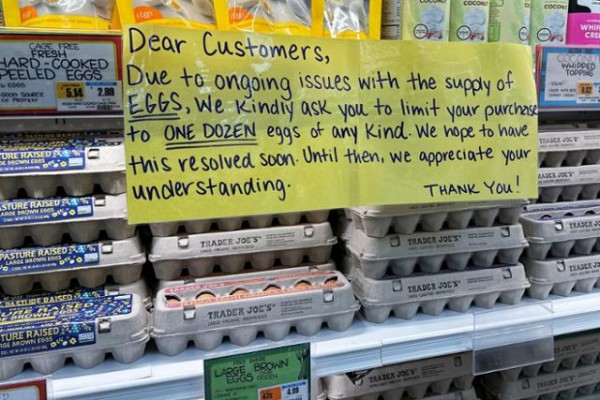 Dear Customers,
Due to ongoing issues with the supply of
EGGS, We Kindly ask you to limit your purchase
to ONE DOZEN eggs of any Kind. We hope to have
this resolved soon. Until then, we appreciate your
understanding.
THANK YOU!
CAGE FREE
FRESH
HARD-COOKED
PEELED EGGS
6 EGGS
2.99
COCONUT
WHIPPED
TOPPING
PASTURE RAISED
LARGE BROWN EGGS
PASTURE RAISED
LARGE BROWN EGGS
PASTURE RAISED
TRADER JOE'S
TRADER JOE'S
TRADER JOE'S
TRADER JOE'S
TRADER JOE'S
TRADER JOE'S
LARGE BROWN
EGGS DOZEN
4.99
TRADER JOE'S